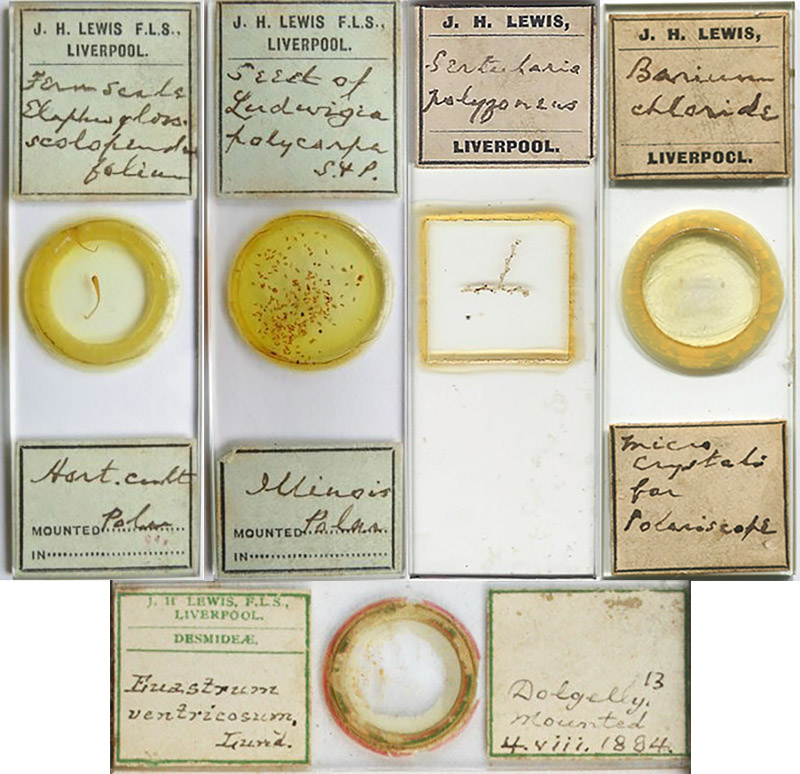 J. H. LEWIS F.L.S.,
LIVERPOOL.
Fern scale
Elaphogloss.
scolopendri
folium
Hort. cult
MOUNTED
IN
J. H. LEWIS F.L.S.,
LIVERPOOL.
Seed of
Ludwigia
polycarpa
S. & P.
Illinois
MOUNTED
IN
J. H. LEWIS,
Sertularia
polyzonias
LIVERPOOL.
J. H. LEWIS,
Barium
chloride
LIVERPOOL.
Micro
crystals
for
Polariscope
J. H LEWIS, F.L.S.,
LIVERPOOL.
DESMIDEÆ.
Euastrum
ventricosum,
Lund.
13
Dolgelly.
Mounted
4. viii. 1884.